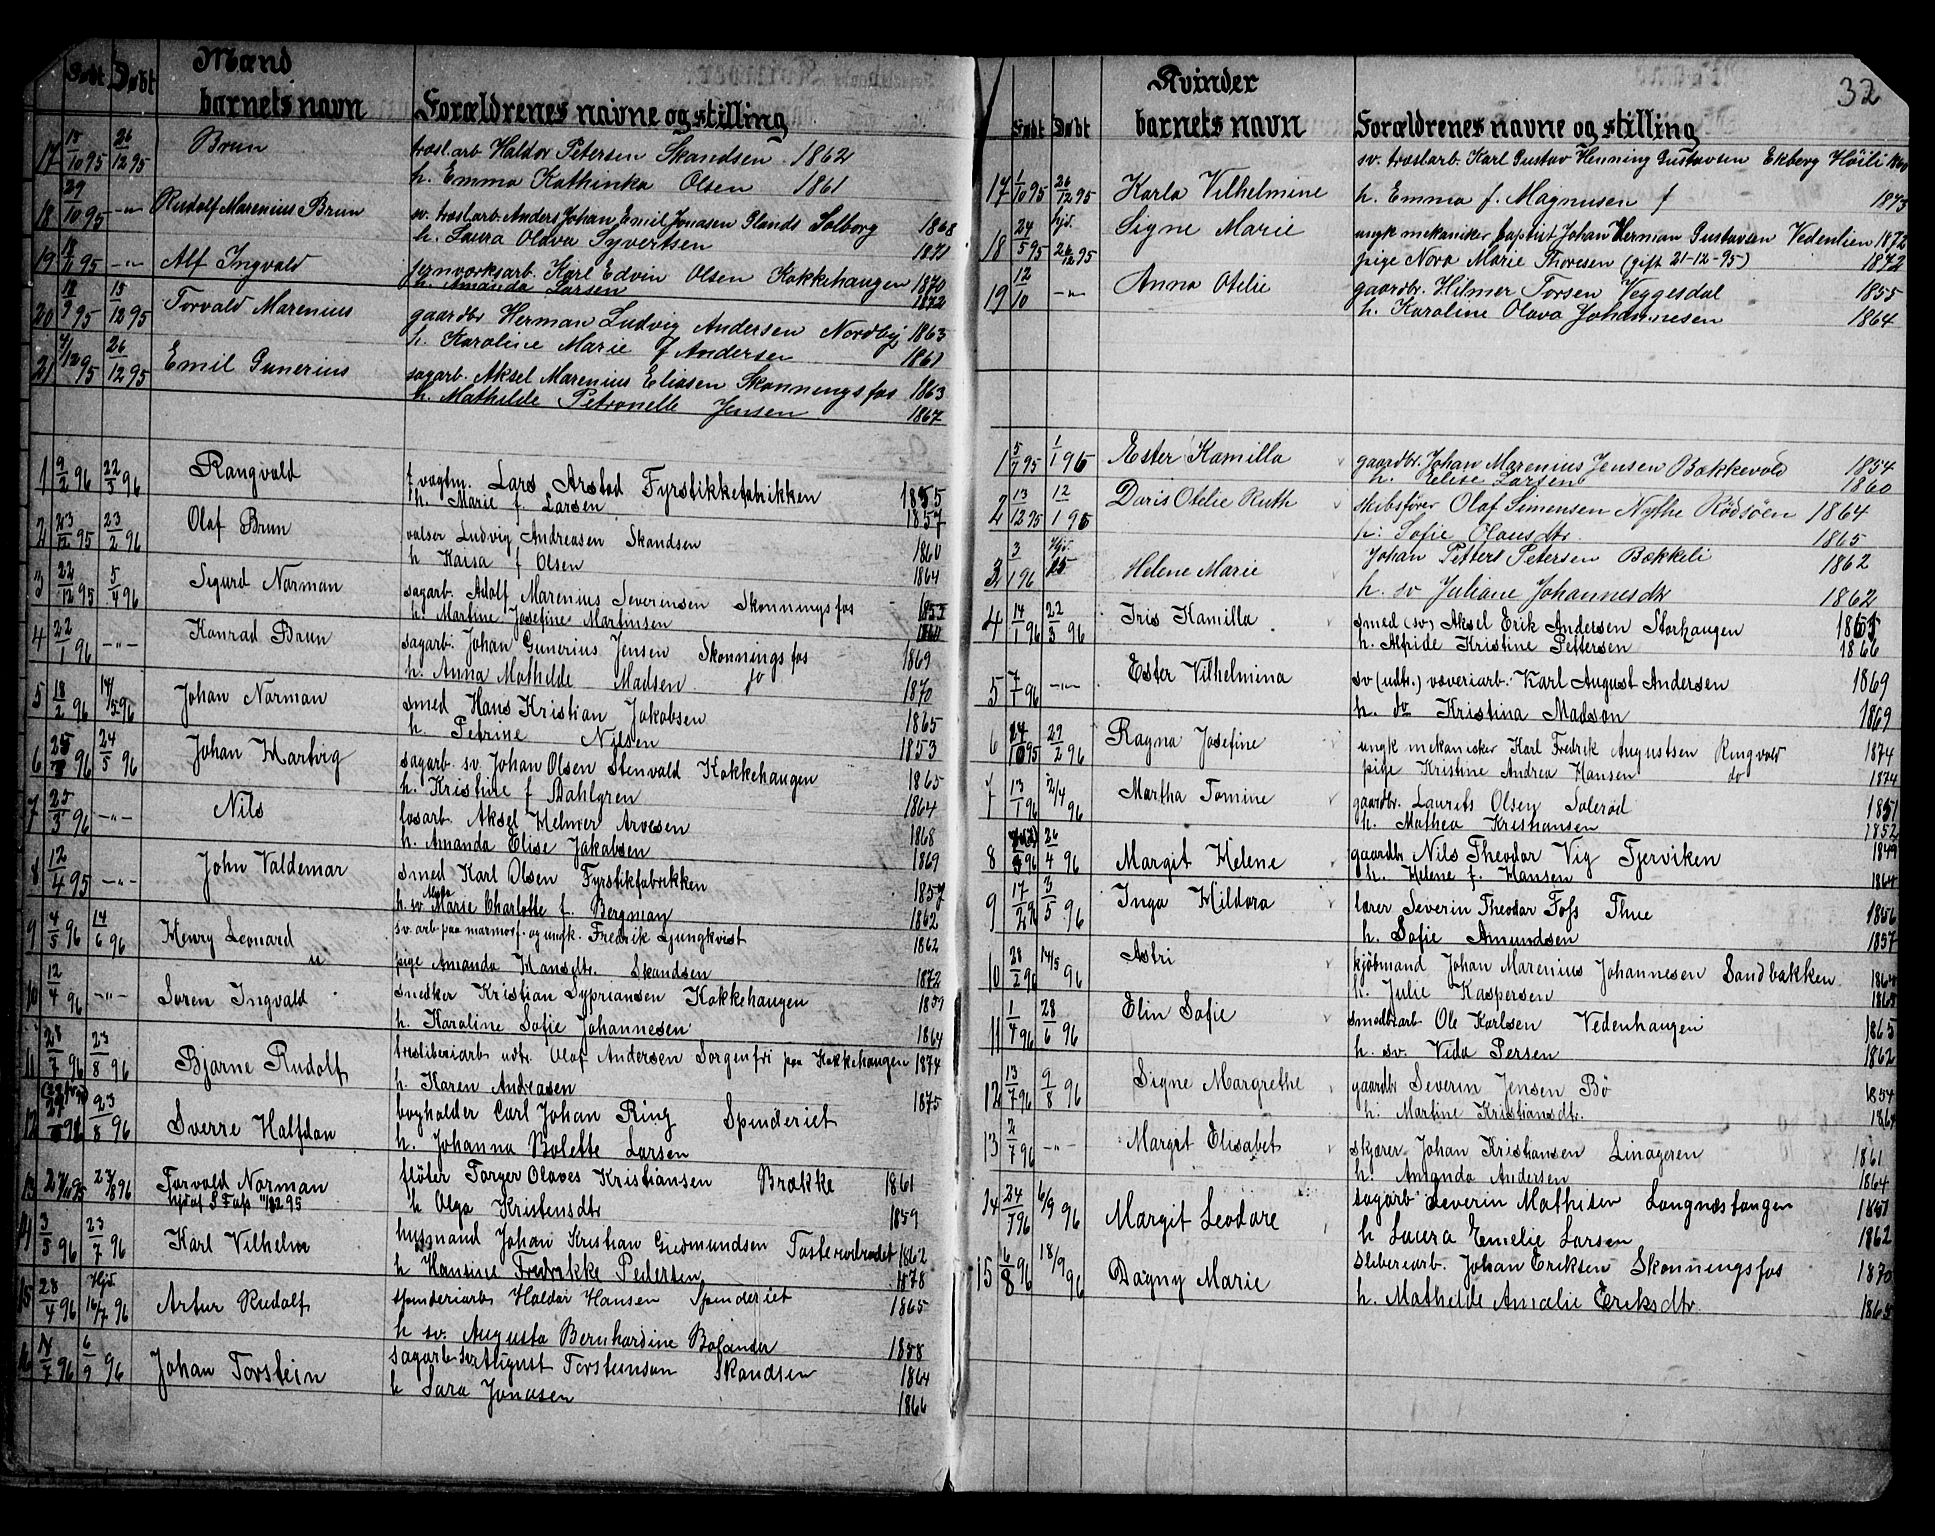 Mænd
Født Døbt barnets navn Forældrenes navne og stilling
17 15/10 95 26/12 95 Brun træsl.arb. Haldor Petersen Skandsen 1862
h. Emma Kathinka Olsen 1861
18 29/10 95 -"- Rudolf Marenius Brun sv. træsl.arb. Anders Johan Emil Jonasen Glands Solborg 1868
h. Laura Olava Syvertsen 1871
19 -"- Alf Ingvald jernværksarb. Karl Edvin Olsen Kokkehaugen 1870
h. Amanda Larsen 1872
20 18/9 95 15/12 95 Torvald Marenius gaardbr Herman Ludvig Andersen Nordby 1863
h. Karoline Marie f Andersen 1861
21 4/12 95 26/12 95 Emil Gunerius sagarb. Aksel Marenius Eliasen Skonningsfos 1863
h. Mathilde Petronelle Jensen 1867
1 9/2 96 22/3 96 Rangvald f. vagtm. Lars Arstad Fyrstikkefabrikken 1855
h. Marie f. Larsen 1857
2 23/12 95 23/2 96 Olaf Brun valser Ludvig Andreasen Skandsen 1860
h Kaisa f Olsen 1864
3 22/12 95 5/4 96 Sigurd Norman sagarb. Adolf Marenius Severinsen Skonningsfos
h. Martine Josefine Martinsen
4 22/1 96 -"- Konrad Brun sagarb. Johan Gunerius Jensen Skonningsfos 1869
h. Anna Mathilde Madsen 1870
5 18/2 96 14/5 96 Johan Norman smed Hans Kristian Jakobsen 1865
h. Petrine Nilsen 1853
6 96 24/5 96 Johan Hartvig sagarb. sv. Johan Olsen Stenvald Kokkehaugen 1865
h. Kristine f Dahlgren 1864
7 25/3 96 -"- Nils løsarb. Aksel Helmer Arvesen 1868
h. Amanda Elise Jakobsen 1869
8 12/4 95 -"- John Valdemar smed Karl Olsen Fyrstikfabrikken 1857
h. sv. Marie Charlotte f. Bergman 1862
9 4/5 96 14/6 96 Henry Leonard sv. arb paa marmorf. og ungk. Fredrik Ljungkvist 1862
pige Amanda Hansdtr. Skandsen 1872
10 12/4 96 -"- Søren Ingvald snedker Kristian Syprianسen Kokkehaugen 1859
h. Karoline Sofie Johannesen 1864
11 28/7 96 23/8 96 Bjarne Rudolf træsliberiarb. udtr. Olaf Andersen Sorgenfri paa Kokkehaugen 1874
h. Karen Andreasen 1875
12 23/8 96 Sverre Halfdan bogholder Carl Johan Ring Spinderiet
h. Johanna Bolette Larsen
13 95 23/8 96 Torvald Norman fløter Torger Olaves Kristiansen Brække 1861
hjdøf S Foss h Olga Kristensdtr 1859
14 3/5 96 23/7 96 Karl Vilhelm husmand Johan Kristian Gudmundsen 1862
h Hansine Fredrikke Pedersen 1878
15 28/4 96 Hjd. 16/7 96 Artur Rudolf spinderiarb Haldor Hansen Spinderiet 1865
h sv. Augusta Bernhardine Bolander 1858
16 96 6/9 96 Johan Torstein sagarb. August Torsteinson Skandsen 1864
h Sara Jonasen 1866
32
Kvinder
Født Døbt barnets navn Forældrenes navne og stilling
17 1/10 95 26/12 95 Karla Vilhelmine sv. træsl.arb. Karl Gustav Henning Gustavsen Ekberg Høili
h. Emma f. Magnusen f 1873
18 24/5 95 hjd. 26/12 95 Signe Marie ungk mekaniker baptist Johan Herman Gustavsen Vedenlien 1872
pige Nora Marie Thoresen (gift 21-12-95) 1872
19 12/10 -"- Anna Otelie gaardbr. Hilmer Torsen Veggesdal 1855
h. Karoline Olava Johannesen 1864
1 5/7 95 1/1 96 Ester Kamilla gaardbr. Johan Marenius Jensen Bakkevold 1854
h. Elise Larsen 1860
2 13/12 95 12/1 96 Doris Otelie Ruth skibsfører Olaf Simensen Nythe Rødsøen 1864
h. Sofie Olausdtr. 1865
3 3/1 96 Hjd. Helene Marie Johan Petters Petersen Bækkeli 1862
h. sv Juliane Johannesdtr 1862
4 14/1 96 22/3 96 Iris Kamilla smed (sv) Aksel Erik Andersen Storhaugen 1865
h. Alfride Kristine Pettersen 1866
5 7/ 96 -"- Ester Vilhelmina sv (udtr.) væveriarb. Karl August Andersen 1869
h. do Kristina Madson 1869
6 95 29/2 96 Ragna Josefine ungk mekaniker Karl Fredrik Augustsen Ringvold 1874
pige Kristine Andrea Hansen do 1874
7 13/1 96 2/4 96 Martha Tomine gaardbr. Laurits Olsen Solerød 1851
h. Mathea Kristiansen 1852
8 96 26/4 96 Margit Helene gaardbr. Nils Theodor Vig Tjerviken 1849
h. Helene f. Hansen 1864
9 17/2 3/5 96 Inga Hildora lærer Severin Theodor Foss Thue 1856
h. Sofie Amundsen 1857
10 28/2 96 14/5 96 Astri kjøbmand Johan Marenius Johannesen Sandbakken
h. Julie Kaspersen 1868
11 1/4 96 28/6 96 Elin Sofie smedearb Ole Karlsen Vedenhaugen 1865
h. sv. Vida Persen 1862
12 13/7 96 9/8 96 Signe Margrethe gaardbr Severin Jensen Bø 1854
h. Martine Kristiansdtr. 1864
13 2/7 96 -"- Margit Elisabet skjærer Johan Kristiansen Linageren 1861
h. Amanda Andersen 1864
14 24/7 96 6/9 96 Margit Leodore sagarb Severin Mathisen Langnæstangen 1851
h Laura Emelie Larsen 1862
15 6/8 96 18/9 96 Dagny Marie sliberiarb. Johan Eriksen Skonningsfos 1870
h. Mathilde Amalie Eriksdtr. 1865